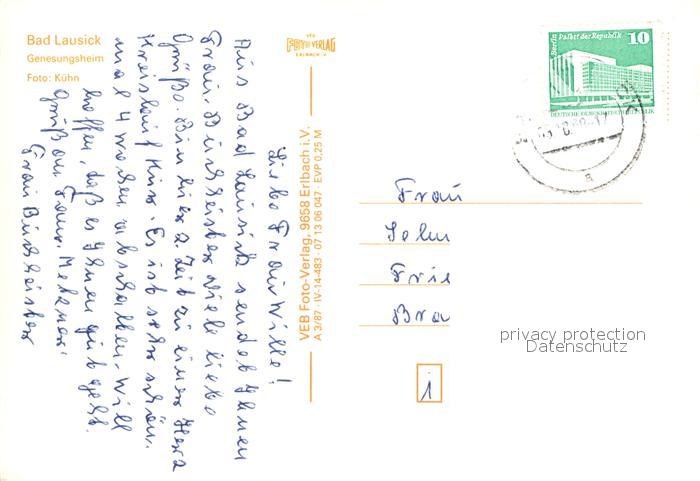 Bad Lausick
Genesungsheim
Foto: Kühn
VEB
FOTO-VERLAG
ERLBACH i.V.
VEB Foto-Verlag, 9658 Erlbach i.V.
A 3/87 · IV-14-483 · 07 13 06 047 · EVP 0,25 M
Liebe Frau Wille!
Aus Bad Lausick sendet Ihnen
Frau viele liebe
Grüße. Bin hier z. Zeit zu einer Herz
Kreislauf Kur. Es ist sehr schön.
mal 4 Wochen abschalten. Will
hoffen, daß es Ihnen gut geht.
Grüß an Fam.
Frau
Berlin Palast der Republik
10
DEUTSCHE DEMOKRATISCHE REPUBLIK
a
Frau
Selm
Frie
Bra
privacy protection
Datenschutz